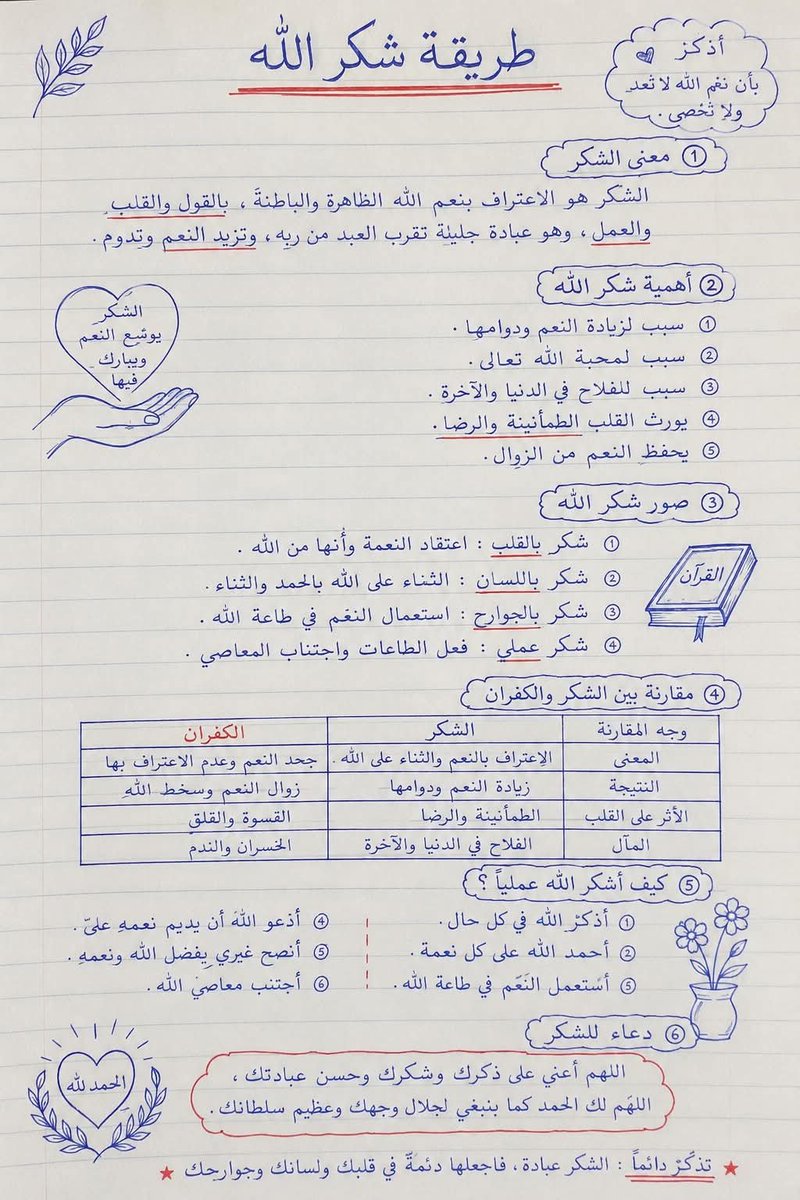 طريقة شكر الله
أذكز
بأن نغم الله لا تعد
ولا تحصى.
① معنى الشكر
الشكر هو الاعتراف بنعم الله الظاهرة والباطنةَ، بالقول والقلب
والعمل، وهو عبادة جليلة تقرب العبد من ربه، وتزيد النعم وتدوم.
② أهمية شكر الله
① سبب لزيادة النعم ودوامها.
② سبب لمحبة الله تعالى.
③ سبب للفلاح في الدنيا والآخرة.
④ يورث القلب الطمأنينة والرضا.
⑤ يحفظ النعم من الزوال.
الشكر
النعم
ويبارك
فيها
③ صور شكر الله
① شكر بالقلب : اعتقاد النعمة وأنها من الله.
② شكر باللسان : الثناء على الله بالحمد والثناء.
③ شكر بالجوارح : استعمال النعَم في طاعة الله.
④ شكر عملي : فعل الطاعات واجتناب المعاصي.
القرآن
④ مقارنة بين الشكر والكفران
وجه المقارنة الشكر الكفران
المعنى الاعتراف بالنعم والثناء على الله. جحد النعم وعدم الاعتراف بها
النتيجة زيادة النعم ودوامها زوال النعم وسخط اللهِ
الأثر على القلب الطمأنينة والرضا القسوة والقلق
المآل الفلاح في الدنيا والآخرة الخسران والندم
⑤ كيف أشكر الله عملياً ؟
① أذكرُ الله في كل حال.
② أحمد الله على كل نعمة.
⑤ أستعمل النَعَم في طاعة الله.
④ أذعو اللهَ أن يديم نعمهِ عليّ.
⑤ أنصح غيري بفضل الله ونعمهِ.
⑥ أجتنب معاصيَ الله.
⑥ دعاء للشكر
اللهم أعني على ذكرك وشكرك وحسن عبادتك،
اللهَم لك الحمد كما بنبغي لجلال وجهك وعظيم سلطانك.
الحمد لله
★ تذكّرْ دائماً : الشكر عبادة، فاجعلها دئمةً في قلبك ولسانك وجوارحك ★